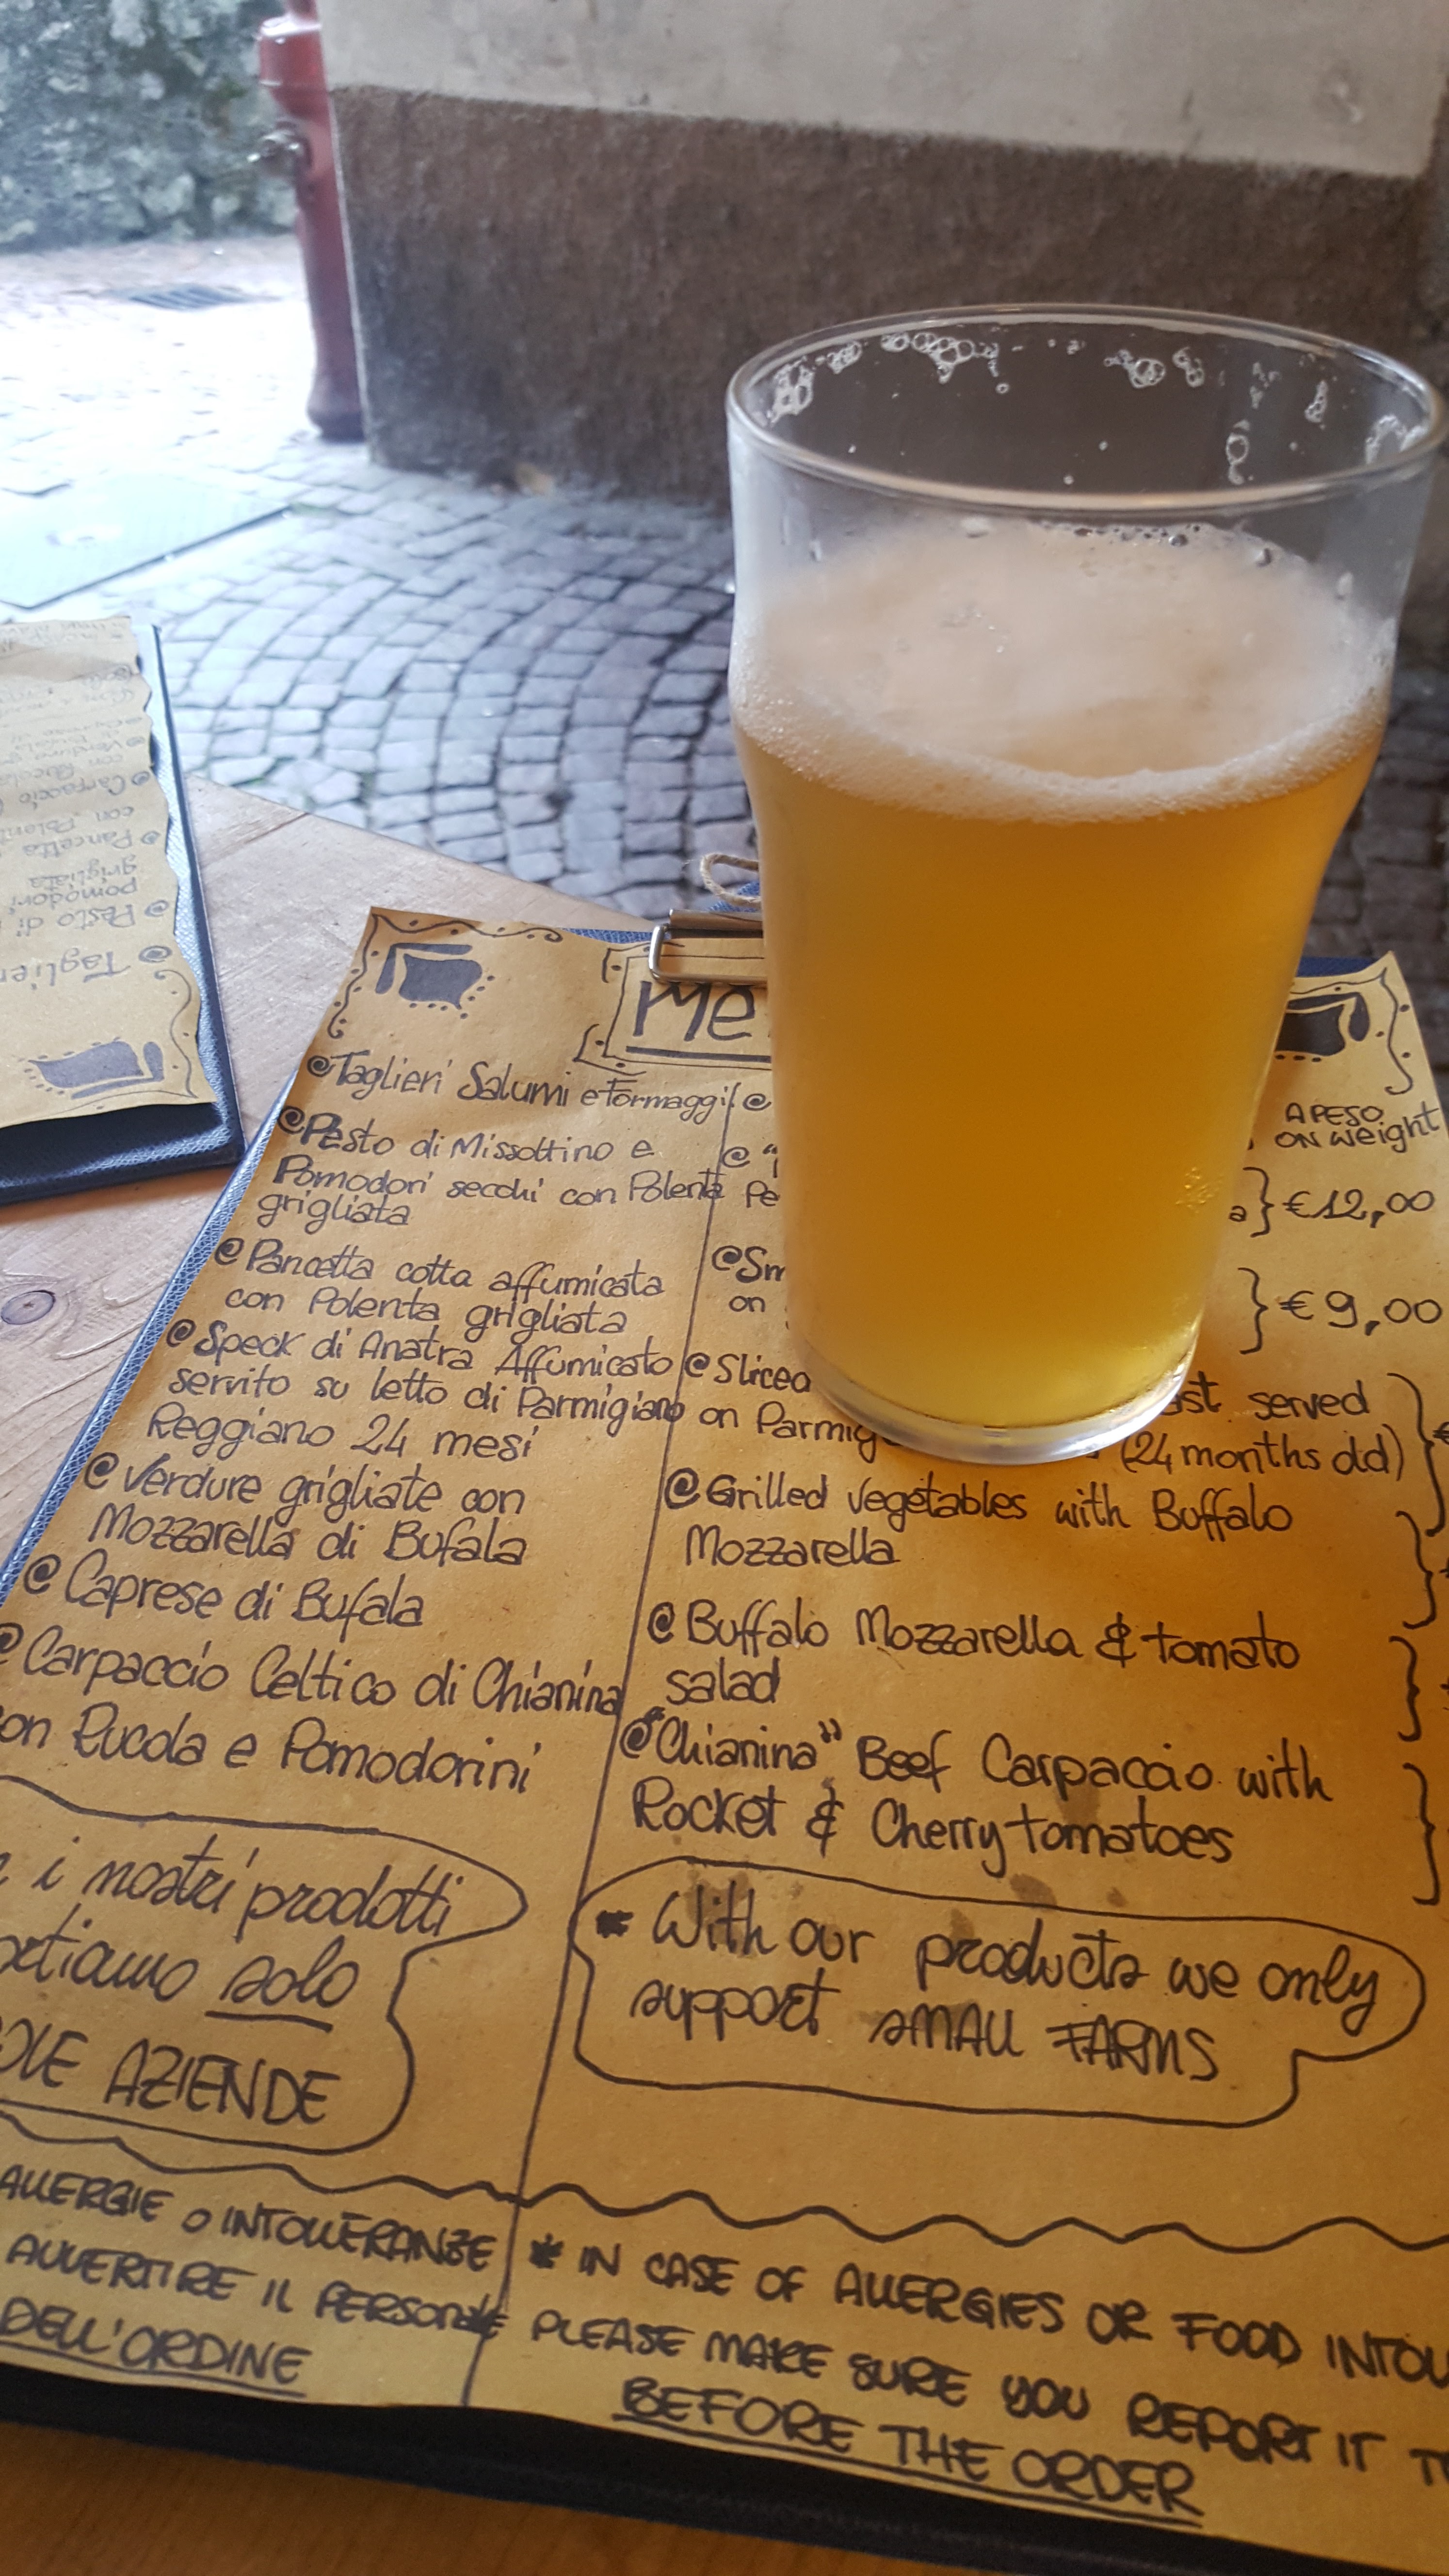 Me
@ Taglieri Salumi e Formaggi
@ Pesto di Missoltino e
Pomodori secchi con Polenta
grigliata
@ Pancetta cotta affumicata
con Polenta grigliata
@ Speck di Anatra Affumicato
servito su letto di Parmigiano
Reggiano 24 mesi
@ Verdure grigliate con
Mozzarella di Bufala
@ Caprese di Bufala
@ Carpaccio Celtico di Chianina
con Rucola e Pomodorini
i nostri prodotti
solo
AZIENDE
ALLERGIE o INTOLLERANZE
AVVERTIRE IL PERSONALE
DELL'ORDINE
@
A PESO
ON weight
@ "
Pe
a } €12,00
@ Sm
on } €9,00
@ Sliced
served
on Parmig (24 months old)
@ Grilled vegetables with Buffalo
Mozzarella
@ Buffalo Mozzarella & tomato
salad
@ "Chianina" Beef Carpaccio with
Rocket & Cherry tomatoes
* With our products we only
support SMALL FARMS
* IN CASE OF ALLERGIES OR FOOD INTOL
PLEASE MAKE SURE YOU REPORT IT T
BEFORE THE ORDER
Carpaccio
con Polent
@ Pancetta
grigliata
pomodori
@ Pesto di
@ Taglier